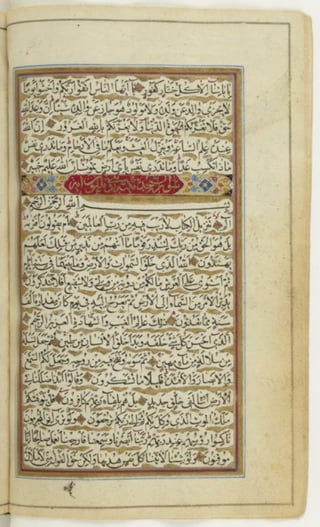 بآياتنا الا كل ختار كفور يا ايها الناس اتقوا ربكم واخشوا يوما
لا يجزي والد عن ولده ولا مولود هو جاز عن والده شيئا ان وعد الله
حق فلا تغرنكم الحيوة الدنيا ولا يغرنكم بالله الغرور ان الله
عنده علم الساعة وينزل الغيث ويعلم ما في الارحام وما تدري نفس
ماذا تكسب غدا وما تدري نفس باي ارض تموت ان الله عليم خبير
بسم الله الرحمن الرحيم
الم تنزيل الكتاب لا ريب فيه من رب العالمين ام يقولون افتريه
بل هو الحق من ربك لتنذر قوما ما اتيهم من نذير من قبلك لعلهم
يهتدون الله الذي خلق السموات والارض وما بينهما في ستة
ايام ثم استوى على العرش ما لكم من دونه من ولي ولا شفيع افلا تتذكرون
يدبر الامر من السماء الى الارض ثم يعرج اليه في يوم كان مقداره الف
سنة مما تعدون ذلك عالم الغيب والشهادة العزيز الرحيم
الذي احسن كل شيء خلقه وبدا خلق الانسان من طين ثم جعل نسله
من سلالة من ماء مهين ثم سويه ونفخ فيه من روحه وجعل لكم السمع
والابصار والافئدة قليلا ما تشكرون وقالوا ائذا ضللنا في
الارض ائنا لفي خلق جديد بل هم بلقاء ربهم كافرون قل يتوفيكم
ملك الموت الذي وكل بكم ثم الى ربكم ترجعون ولو ترى اذ المجرمون
ناكسوا رؤسهم عند ربهم ربنا ابصرنا وسمعنا فارجعنا نعمل صالحا انا
موقنون ولو شئنا لاتينا كل نفس هديها ولكن حق القول مني لاملان